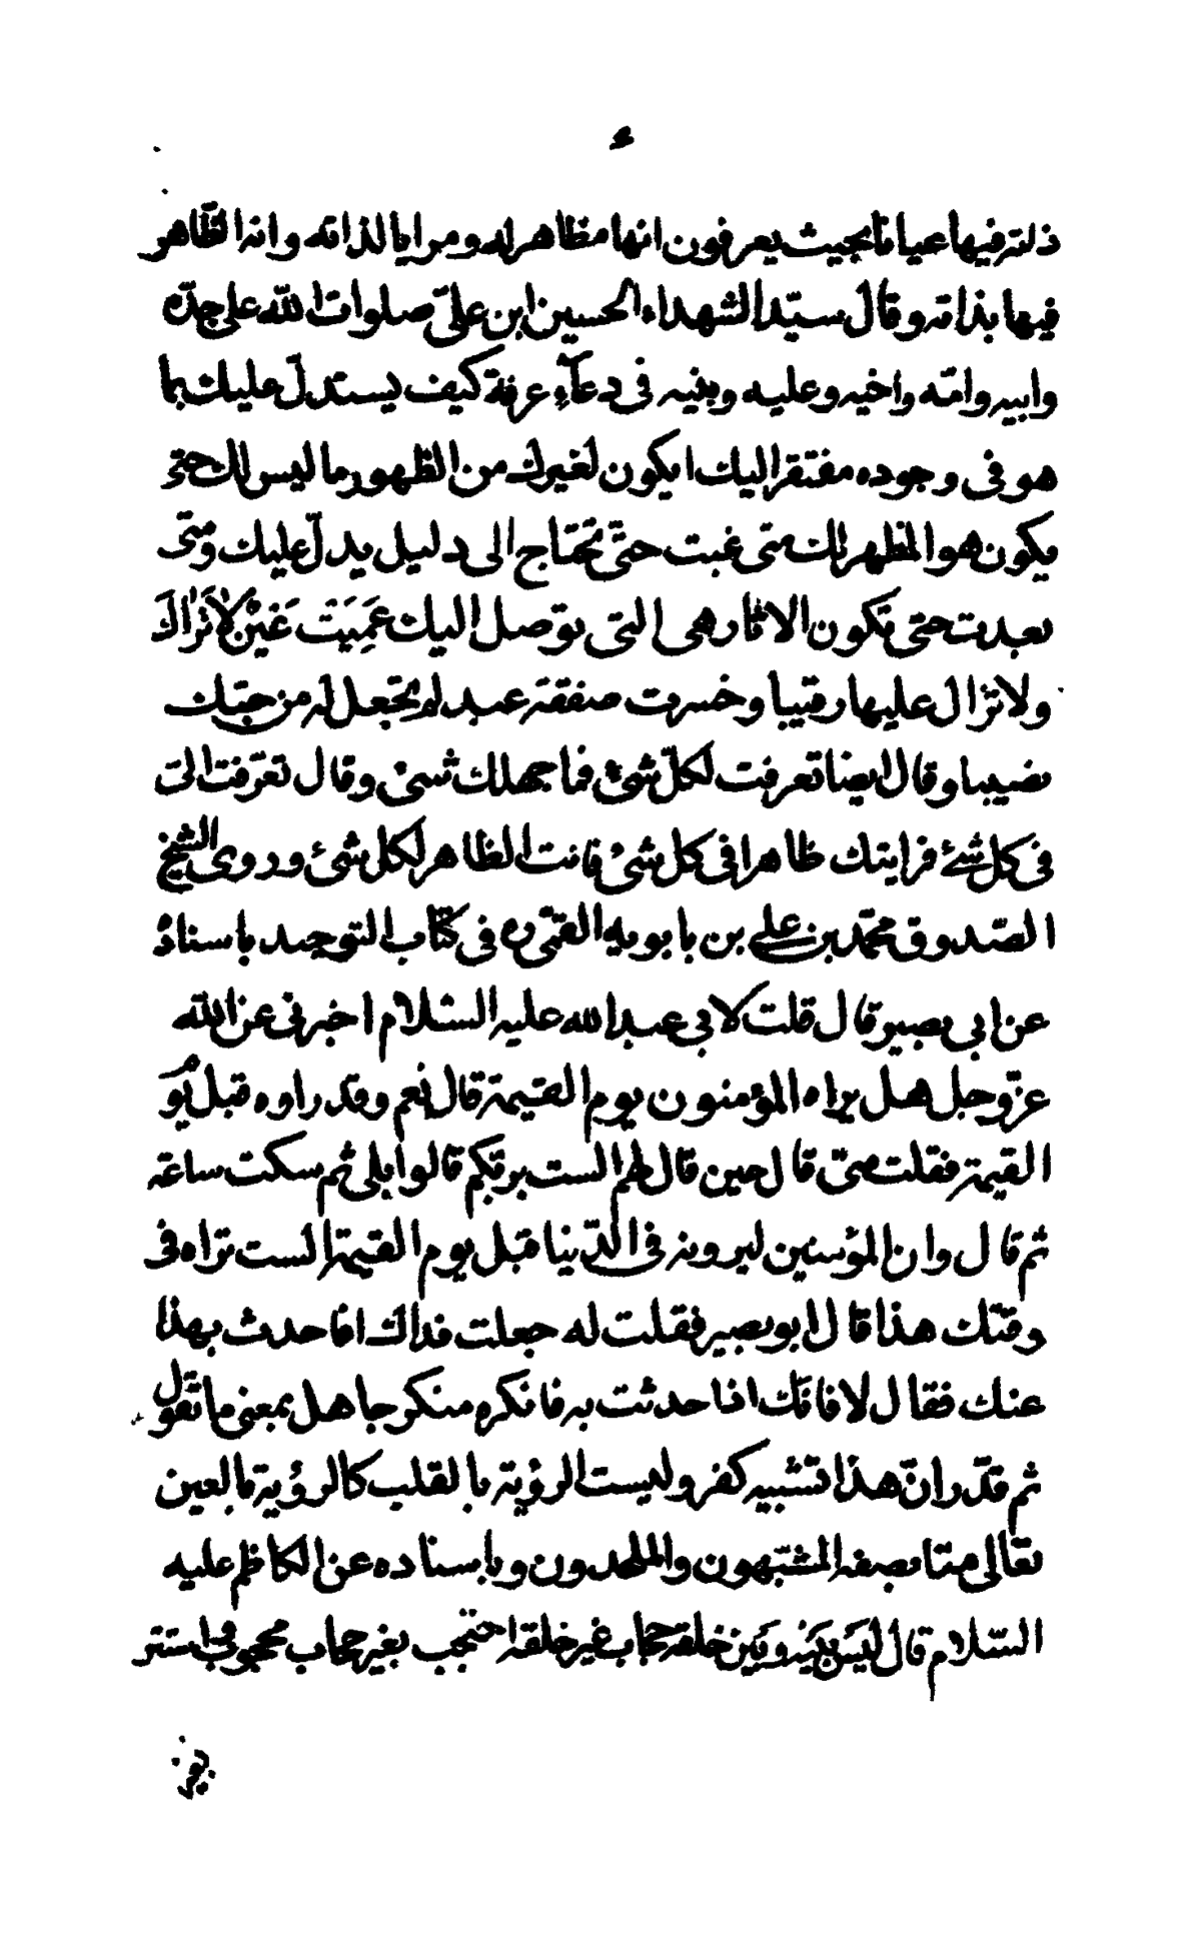 ء
ذلته فيها عيانا بحيث يعرفون انها مظاهر له ومرايا لذاته وانه الظّاهر
فيها بذاته وقال سيّد الشهداء الحسين ابن علىّ صلوات اللّه على جدّه
وابيه وامّه واخيه وعليه وبنيه فى دعآءِ عرفة كيف يستدلّ عليك بما
هو فى وجوده مفتقر اليك ايكون لغيرك من الظهور ما ليس لك حتى
يكون هو المظهر لك متى غبت حتّى تحتاج الى دليل يدلّ عليك ومتى
بعدت حتى تكون الاثار هى التى توصل اليك عَمِيَتْ عَيْنٌ لاٰ تَرٰاكَ
ولا تزال عليها رقيبا وخسرت صفقة عبد لم تجعل له من حبّك
نصيبا وقال ايضا تعرفت لكلّ شئ فما جهلك شئ وقال تعرّفت الىّ
فى كل شئ فرايتك ظاهرا فى كل شئ فانت الظاهر لكل شئ وروى الشيخ
الصّدوق محمّد بن على بن بابويه القمّى ره فى كتاب التوحيد باسناده
عن ابى بصير قال قلت لابى عبد الله عليه السّلام اخبرنى عن اللّه
عزّ وجل هل يراه المؤمنون يوم القيمة قال نعم وقد راوه قبل يوم
القيمة فقلت متى قال حين قال لهم الست بربّكم قالوا بلى ثم سكت ساعة
ثم قال وان المؤمنين ليرونه فى الدّنيا قبل يوم القيمة الست تراه فى
وقتك هذا قال ابو بصير فقلت له جعلت فداك افاحدث بهذا
عنك فقال لا فانّك اذا حدثت به فانكره منكر جاهل بمعنى ما تقول
ثم قدّر انّ هذا تشبيه كفر وليست الرؤية بالقلب كالرؤية بالعين
تعالى عمّا يصفه المشبّهون والملحدون وباسناده عن الكاظم عليه
السّلام قال لَيْسَ بَيْنَهُ وبَيْنَ خلقه حجاب غير خلقه احتجب بغير حجاب محجوب واستتر
بغير